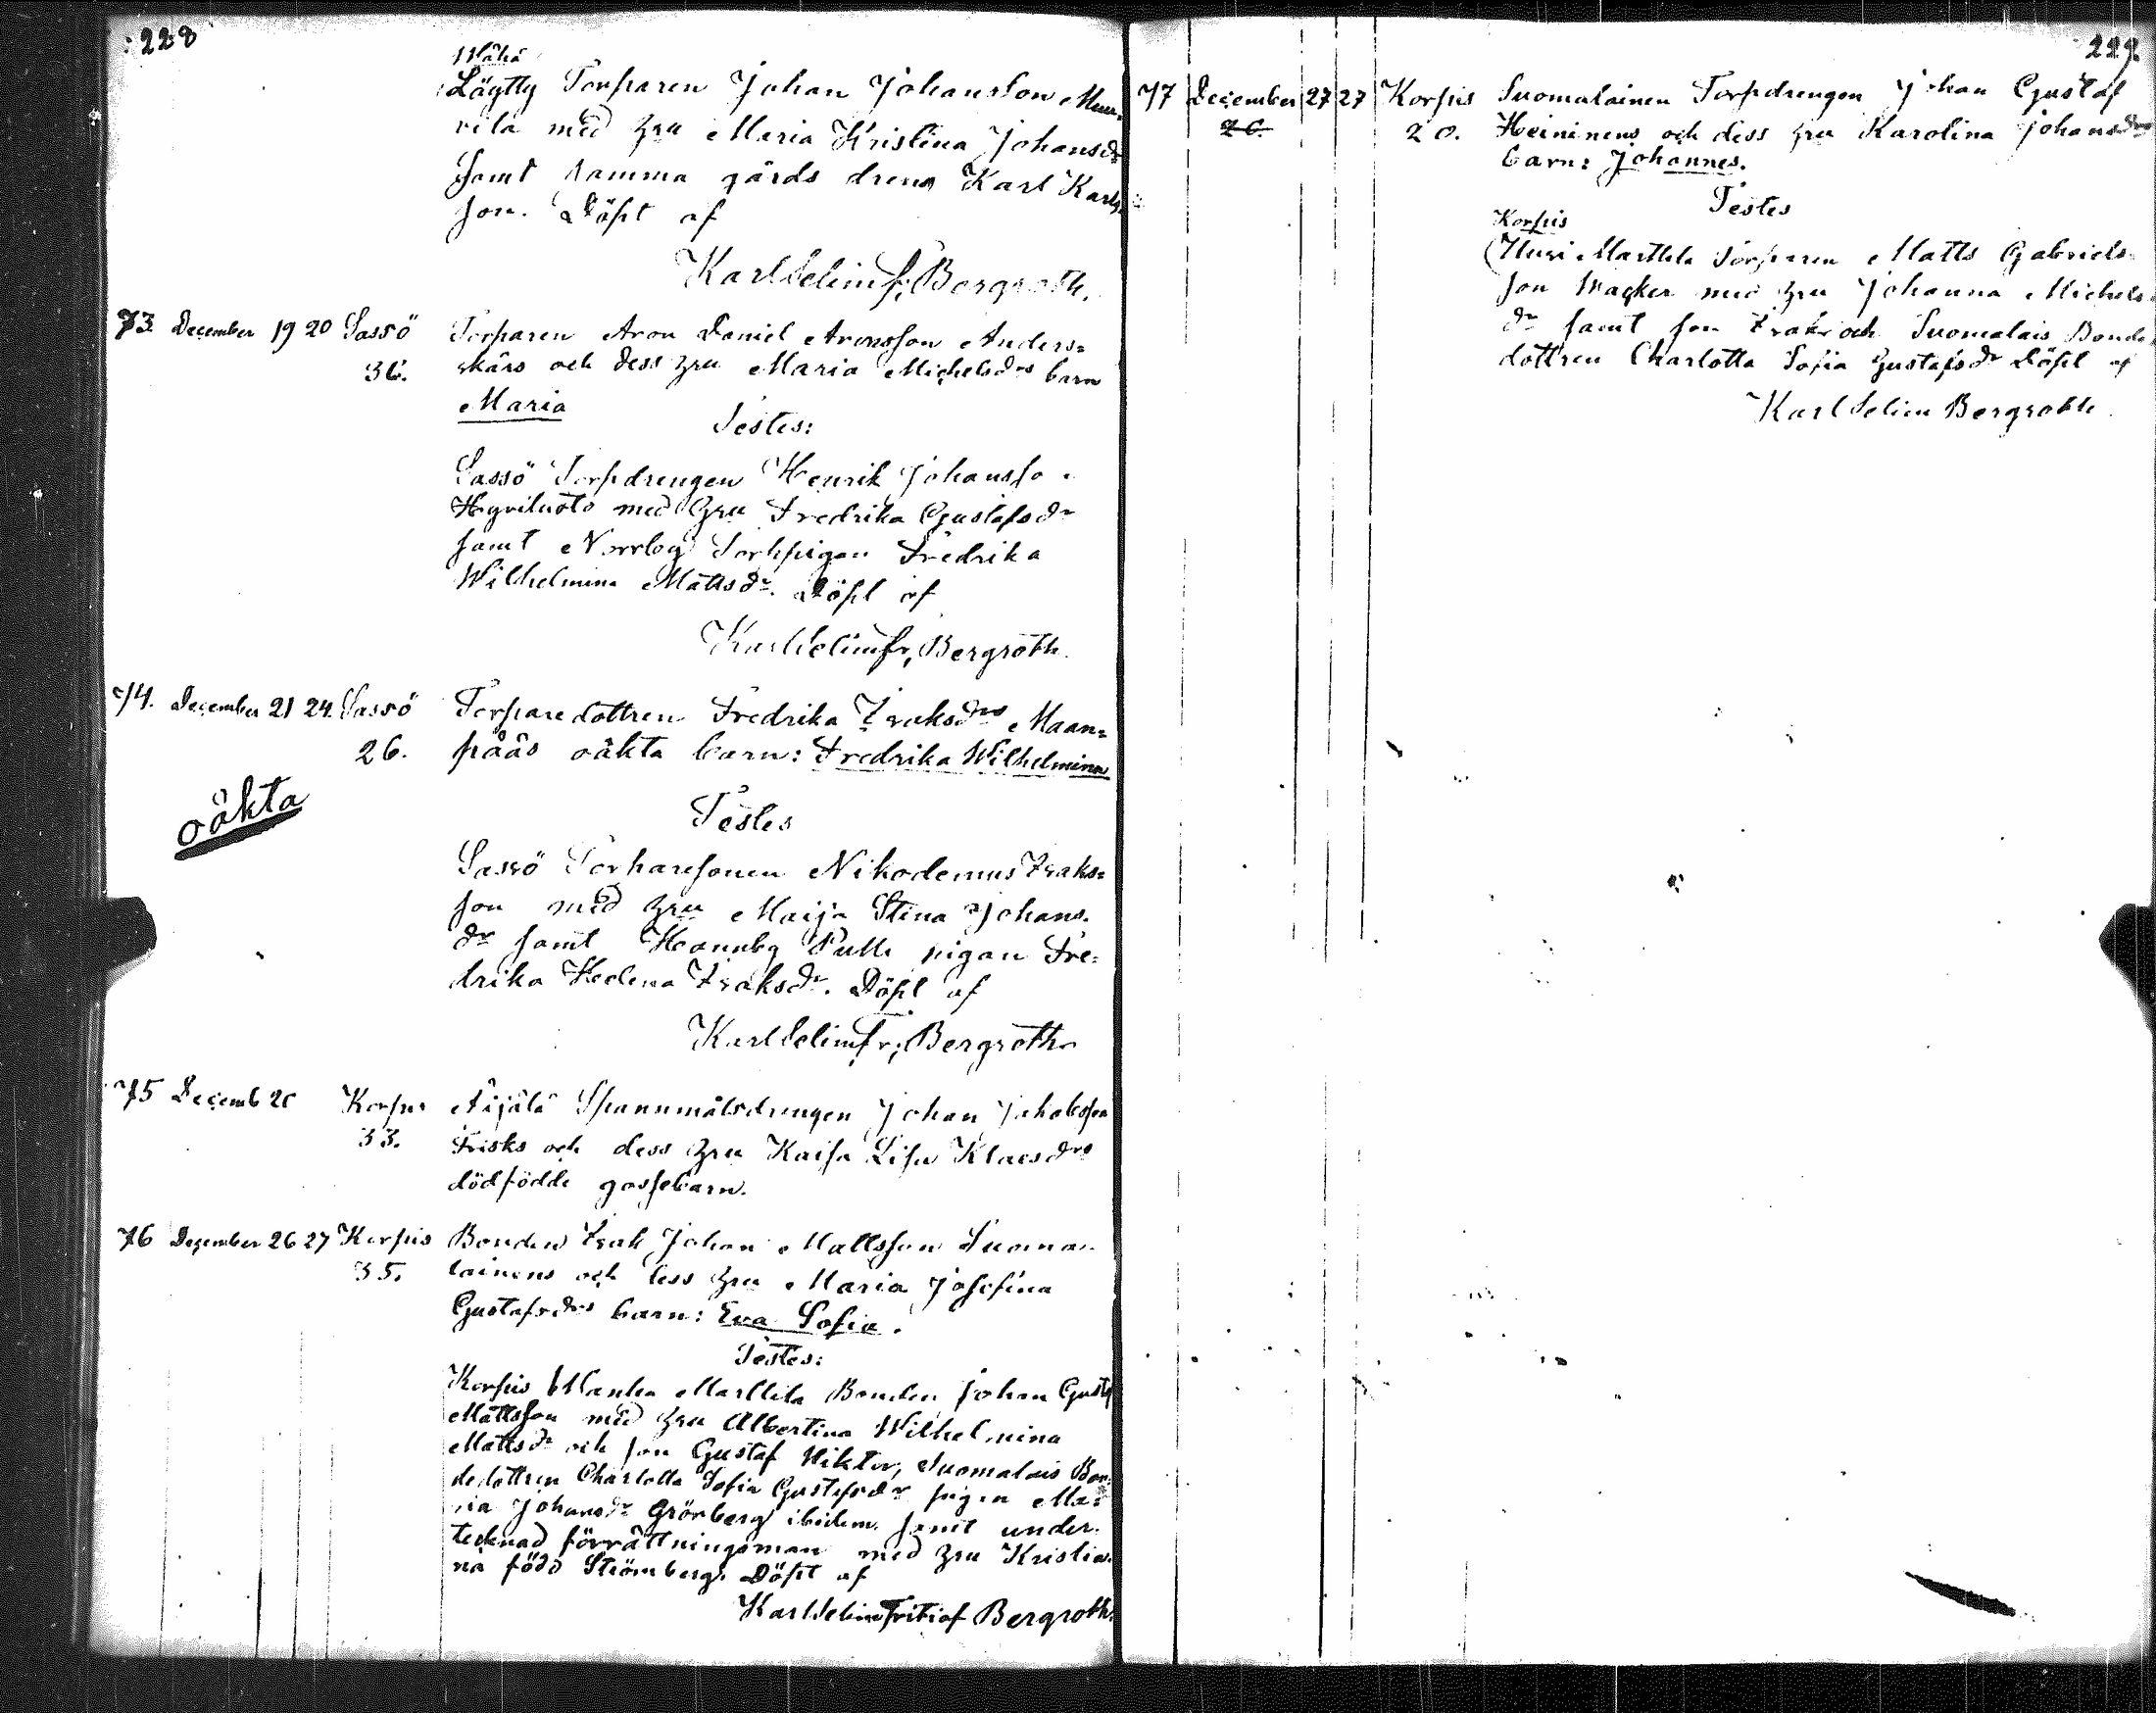 228
Wähä
Löytty Torparen Johan Johansson Muu-
rila med hru Maria Kristina Johansdr
samt samma gårds dreng Karl Karls-
son. Döpt af
Karl Selim Fr. Bergroth.
73. December 19 20 Sassö Torparen Aron Daniel Aronsson Anders=
36. skärs och dess hru Maria Michelsdrs barn
Maria
Testes:
Sassö Torpdrengen Henrik Johansso
med hru Fredrika Gustafsdr
samt Norrby Torppigan Fredrika
Wilhelmina Mattsdr. Döpt af
Karl Selim Fr. Bergroth.
74. December 21 24. Sassö Torparedottren Fredrika Isaksdrs Maan=
26. pääs oäkta barn: Fredrika Wilhelmina
oäkta
Testes
Sassö Torparesonen Nikodemus Isaks=
son med hru Maija Stina Johans-
dr samt Hannby pigan Fre=
drika Helena Isaksdr. Döpt af
Karl Selim Fr. Bergroth
75 Decemb 26 Korpis Äijälä Spannmålsdrengen Johan Jakobsson
33. Frisks och dess hru Kaisa Lisa Klaesdrs
dödfödde gossebarn.
76 December 26 27 Korpis Bonden Isak Johan Mattsson Suoma-
35. lainens och dess hru Maria Josefina
Gustafsdrs barn: Eva Sofia.
Testes:
Korpis Wanha Marttila Bonden Johan Gustf
Mattsson med hru Albertina Wilhelmina
Mattsdr och son Gustaf Wiktor, Suomalais Bon-
dedottren Charlotta Sofia Gustafsdr pigan Ma=
ria Johansdr Grönberg ibidem samt under-
tecknad förrättningsman med hru Kristia-
na född Strömberg. Döpt af
Karl Selim Fritiof Bergroth.
229.
77 December 27 27 Korpis Suomalainen Torpdrengen Johan Gustaf
26 20. Heininens och dess hru Karolina Johansdrs
barn: Johannes.
Testes
Korpis
Uusi Marttila Torparen Matts Gabriels-
son Wacker med hru Johanna Michels-
dr samt son Isak och Suomalais Bonde
dottren Charlotta Sofia Gustafsdr Döpt af
Karl Selim Bergroth.